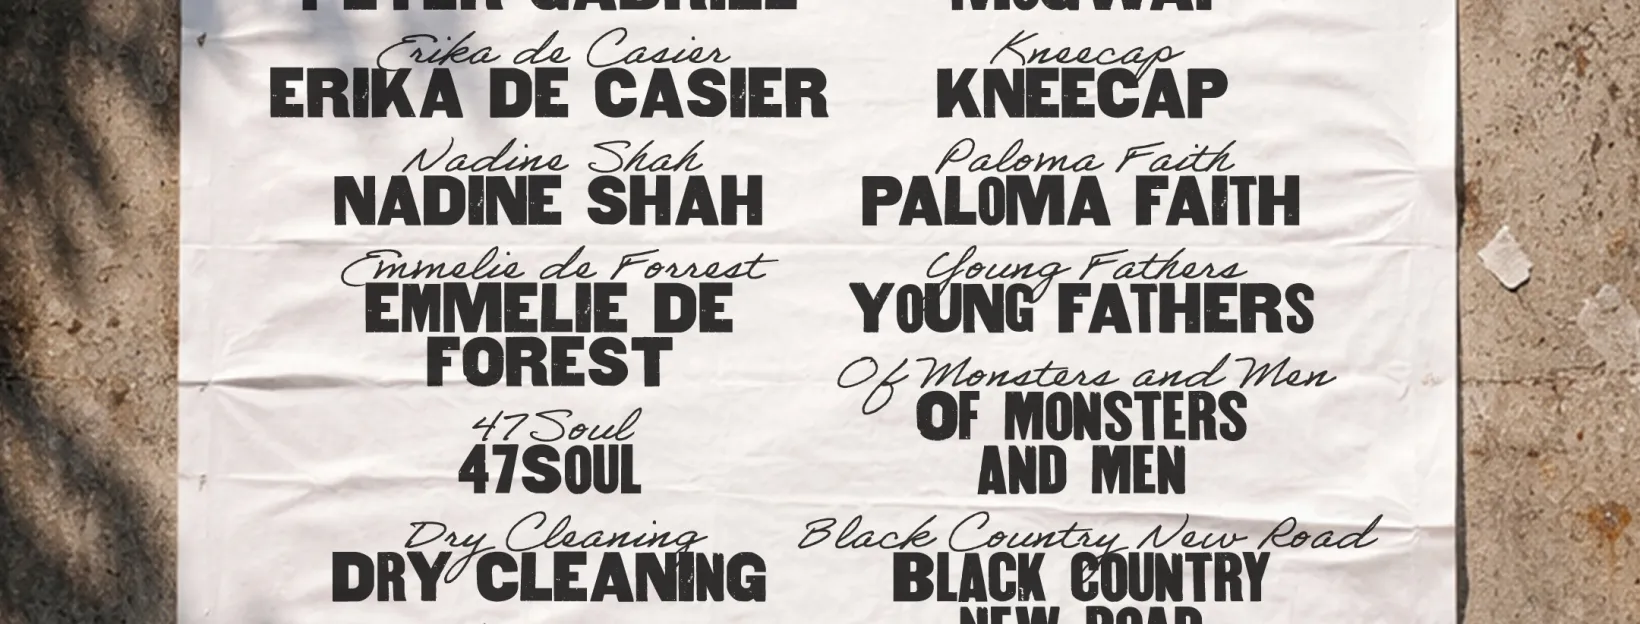 PETER GABRIEL
Erika de Casier
ERIKA DE CASIER
Nadine Shah
NADINE SHAH
Emmelie de Forrest
EMMELIE DE
FOREST
47Soul
47SOUL
Dry Cleaning
DRY CLEANING
MOGWAI
Kneecap
KNEECAP
Paloma Faith
PALOMA FAITH
Young Fathers
YOUNG FATHERS
Of Monsters and Men
OF MONSTERS
AND MEN
Black Country New Road
BLACK COUNTRY
NEW ROAD